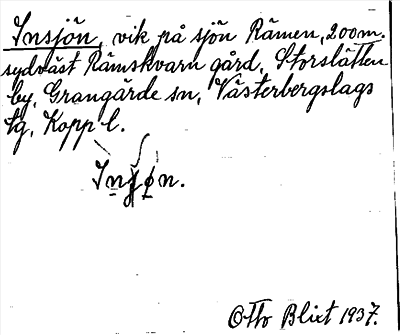 Insjön, vik på sjön Rämen, 200 m.
sydväst Rämskvarn gård, Storslätten
by, Grangärde sn, Västerbergslags
tg, Kopp l.
Otto Blixt 1937.